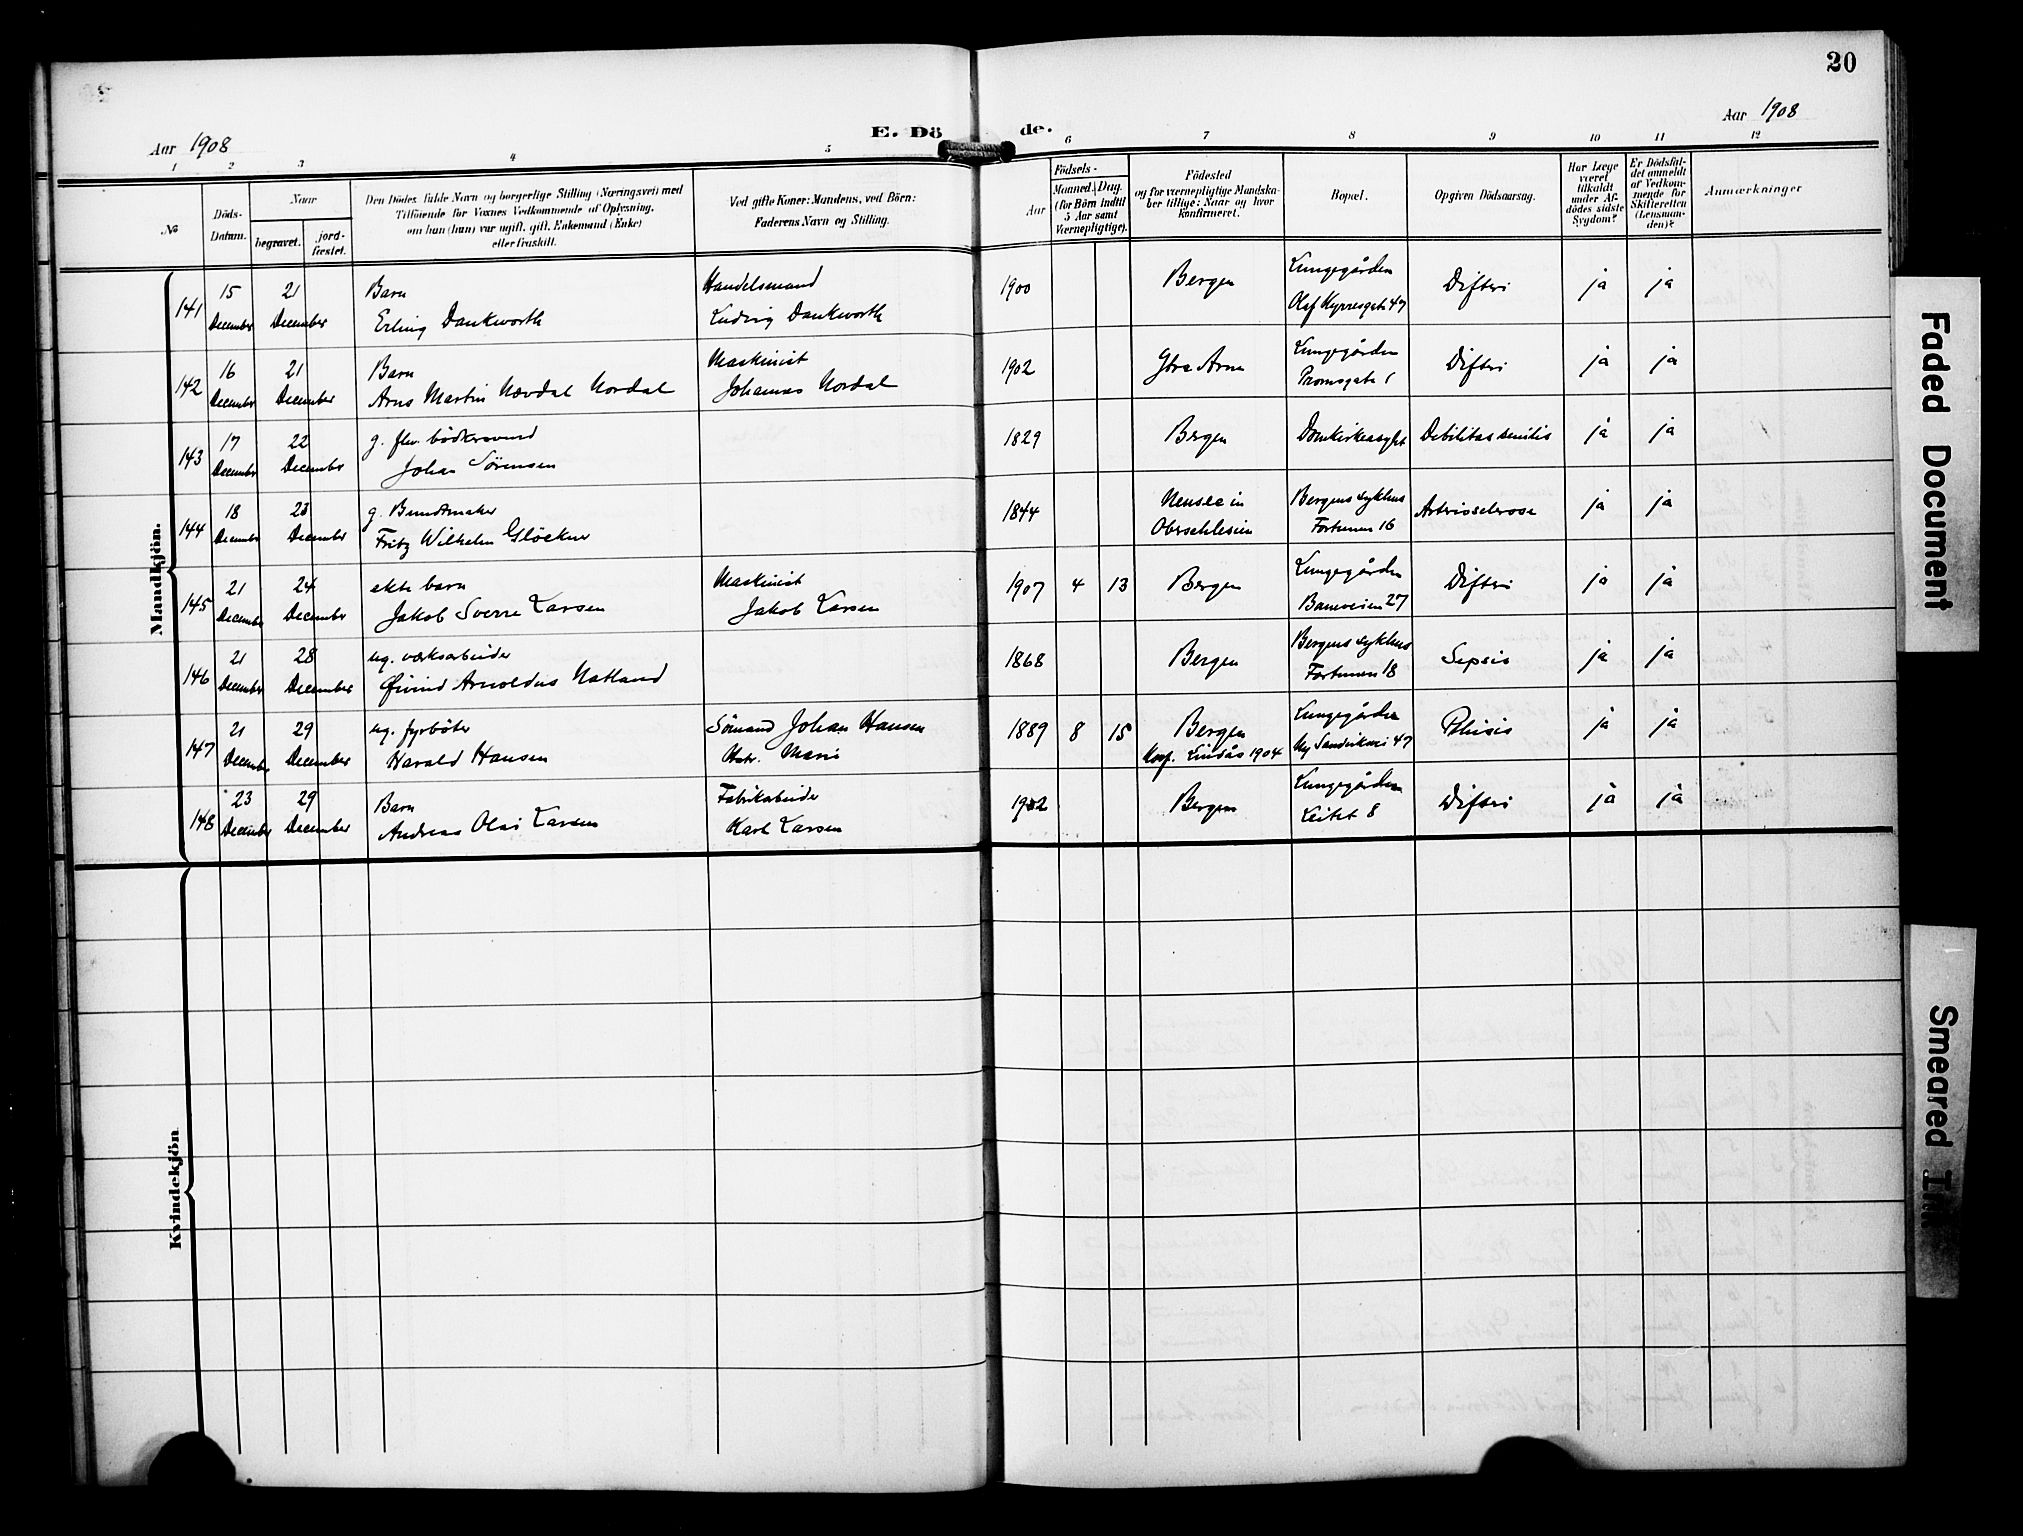 20
Aar 1908
E. Dö de.
Aar 1908
1 2 3 4 5 6 7 8 9 10 11 12
№
Döds-
Datum.
Naar
begravet.
jord-
fæstet.
Den Dödes fulde Navn og borgerlige Stilling (Næringsvei) med
Tilföiende for Voxnes Vedkommende af Oplysning,
om han (hun) var ugift, gift, Enkemand (Enke)
eller fraskilt.
Ved gifte Koner: Mandens, ved Börn:
Faderens Navn og Stilling.
Födsels-
Aar
Maaned. Dag.
(for Börn indtil
5 Aar samt
Værnepligtige).
Födested
og for værnepligtige Mandska-
ber tillige: Naar og hvor
konfirmeret.
Bopæl.
Opgiven Dödsaarsag.
Har Læge
været
tilkaldt
under Af-
dödes sidste
Sygdom?
Er Dödsfal-
det anmeldt
af Vedkom-
mende for
Skifteretten
(Lensman-
den)?
Anmærkninger
Mandkjön.
141 15 December 21 December
Barn
Erling Dankworth
Handelsmand
Ludvig Dankworth
1900 Bergen
Lungegården
Olaf Kyrresgate 47
Difteri ja ja
142 16 December 21 December
Barn
Arne Martin Nævdal Nordal
Maskinist
Johannes Nordal
1902 Arne
Lungegården
Difteri ja ja
143 17 December 22 December
g. bödkersvend
Johan Sörensen
1829 Bergen Domkirkeasylet Debilitas senilis ja ja
144 18 December 23 December
g. Bundtmaker
Fritz Wilhelm Glöckner
1844
in
Oberschlesien
Bergens sykhus
Fortunen 16
Arteriosclerose ja ja
145 21 December 24 December
ekte barn
Jakob Sverre Larsen
Maskinist
Jakob Larsen
1907 4 13 Bergen
Lungegården
Baneveien 27
Difteri ja ja
146 21 December 28 December
ug. verksarbeider
Øivind Arnoldus Natland
1868 Bergen
Bergens sykhus
Fortunen 18
Sepsis ja ja
147 21 December 29 December
ug. fyrböter
Harald Hansen
Sömand Johan Hansen
Hstr. Marie
1889 8 15 Bergen
Konf. Lindås 1904
Lungegården
Ny Sandviksvei 47
Phtisis ja ja
148 23 December 29 December
Barn
Andreas Olai Larsen
Fabrikarbeider
Karl Larsen
1902 Bergen
Lungegården
Leitet 8
Difteri ja ja
Kvindekjön
Faded Document
Smeared Ink